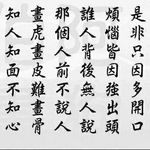 是非只因多開口
煩惱皆因強出頭
誰人背後無人說
那個人前不說人
畫虎畫皮難畫骨
知人知面不知心